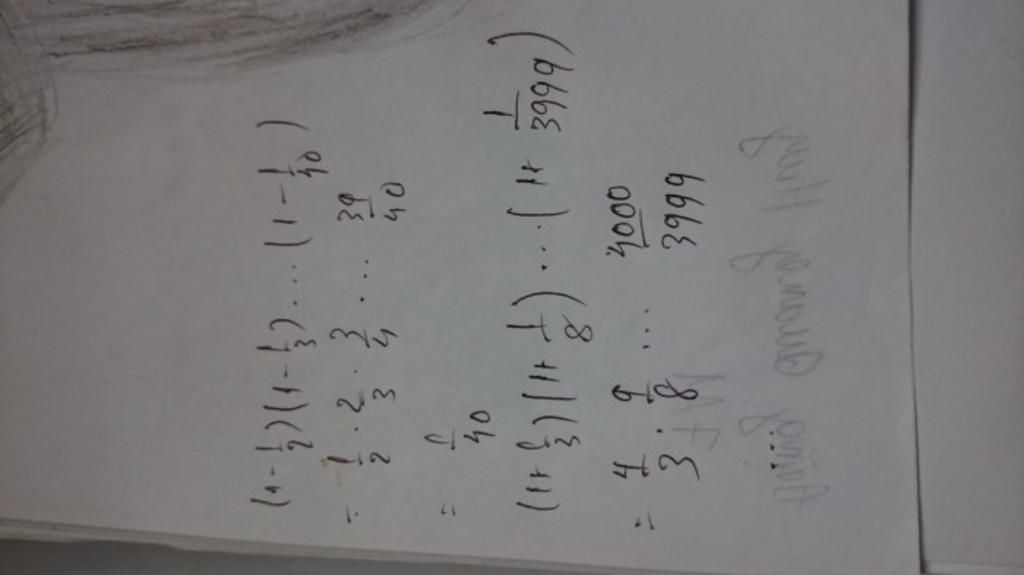 (1 - 1/2)(1 - 1/3) ... (1 - 1/40)
= 1/2 · 2/3 · 3/4 ... 39/40
= 1/40
(1 + 1/3)(1 + 1/8) ... (1 + 1/3999)
= 4/3 · 9/8 ... 4000/3999